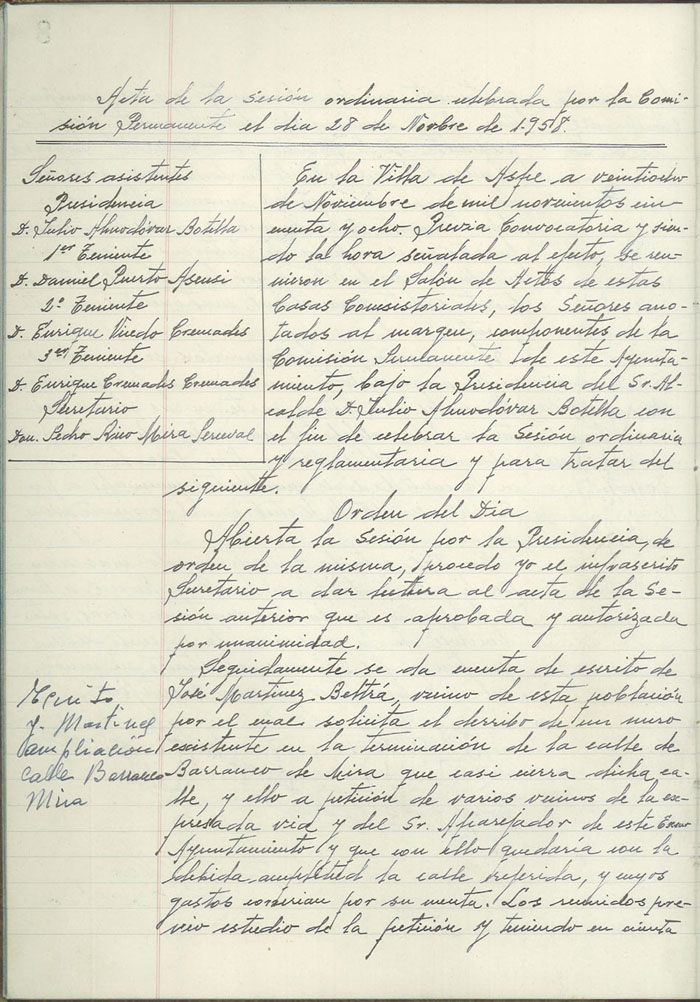 Acta de la sesión ordinaria celebrada por la Comi-
sión Permanente el dia 28 de Novbre de 1.958.
Señores asistentes
Presidencia
D. Julio Almodóvar Botella
1er Teniente
D. Daniel Puerto Asensi
2º Teniente
D. Enrique Viuedo Cremades
3er Teniente
D. Enrique Cremades Cremades
Secretario
Don. Pedro Rico Mira Perceval
En la Villa de Aspe a veintiocho
de Noviembre de mil novecientos cin-
cuenta y ocho. Previa Convocatoria y sien-
do la hora señalada al efecto, se reu-
nieron en el Salón de Actos de estas
Casas Consistoriales, los Señores ano-
tados al margen, componentes de la
Comisión Permanente de este Ayunta-
miento, bajo la Presidencia del Sr. Al-
calde D. Julio Almodóvar Botella con
el fin de celebrar la Sesión ordinaria
y reglamentaria y para tratar del
siguiente.
Orden del Dia
Abierta la Sesión por la Presidencia, de
orden de la misma, procedo yo el infrascrito
Secretario a dar lectura al acta de la Se-
sión anterior que es aprobada y autorizada
por unanimidad.
Escrito
J. Martinez
ampliación
calle Barranco
Mira
Seguidamente se da cuenta de escrito de
José Martinez Beltrá, vecino de esta población
por el cual solicita el derribo de un muro
existente en la terminación de la calle de
Barranco de Mira que casi cierra dicha ca-
lle, y ello a petición de varios vecinos de la ex-
presada via y del Sr. Aparejador de este Excmo
Ayuntamiento y que con ello quedaria con la
debida amplitud la calle referida, y cuyos
gastos correrian por su cuenta. Los reunidos pre-
vio estudio de la petición y teniendo en cuenta